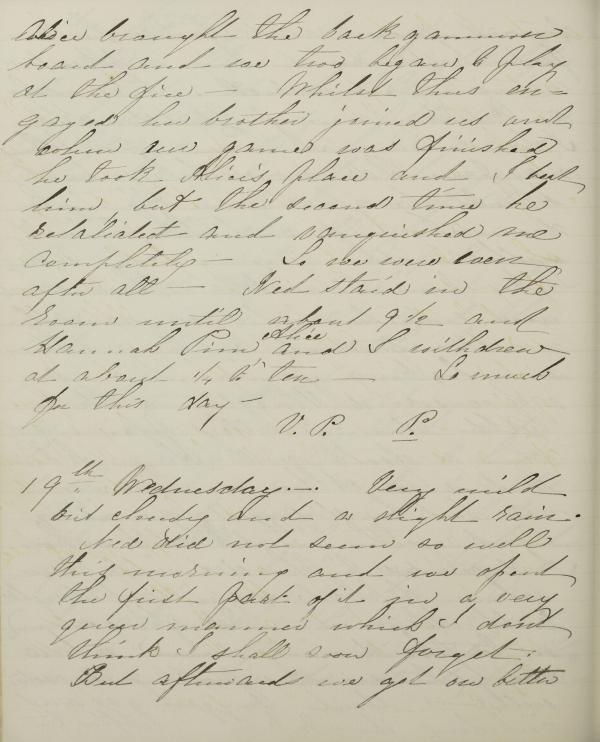 Alice brought the backgammon
board and we two began to play
at the fire — Whilst thus en-
gaged her brother joined us and
when our game was finished
he took Alice's place and I beat
him, but the second time he
retaliated and vanquished me
completely — So we were even
after all — Ned staid in the
room until about 9 1/2 and
Hannah Pim Alice and I withdrew
at about 1/4 to ten — So much
for this day —
V. P. P.
19th Wednesday —. Very mild
but cloudy and a slight rain.
Ned did not seem so well
this morning and we spent
the first part of it in a very
queer manner which I don't
think I shall soon forget.
But afterwards we got on better